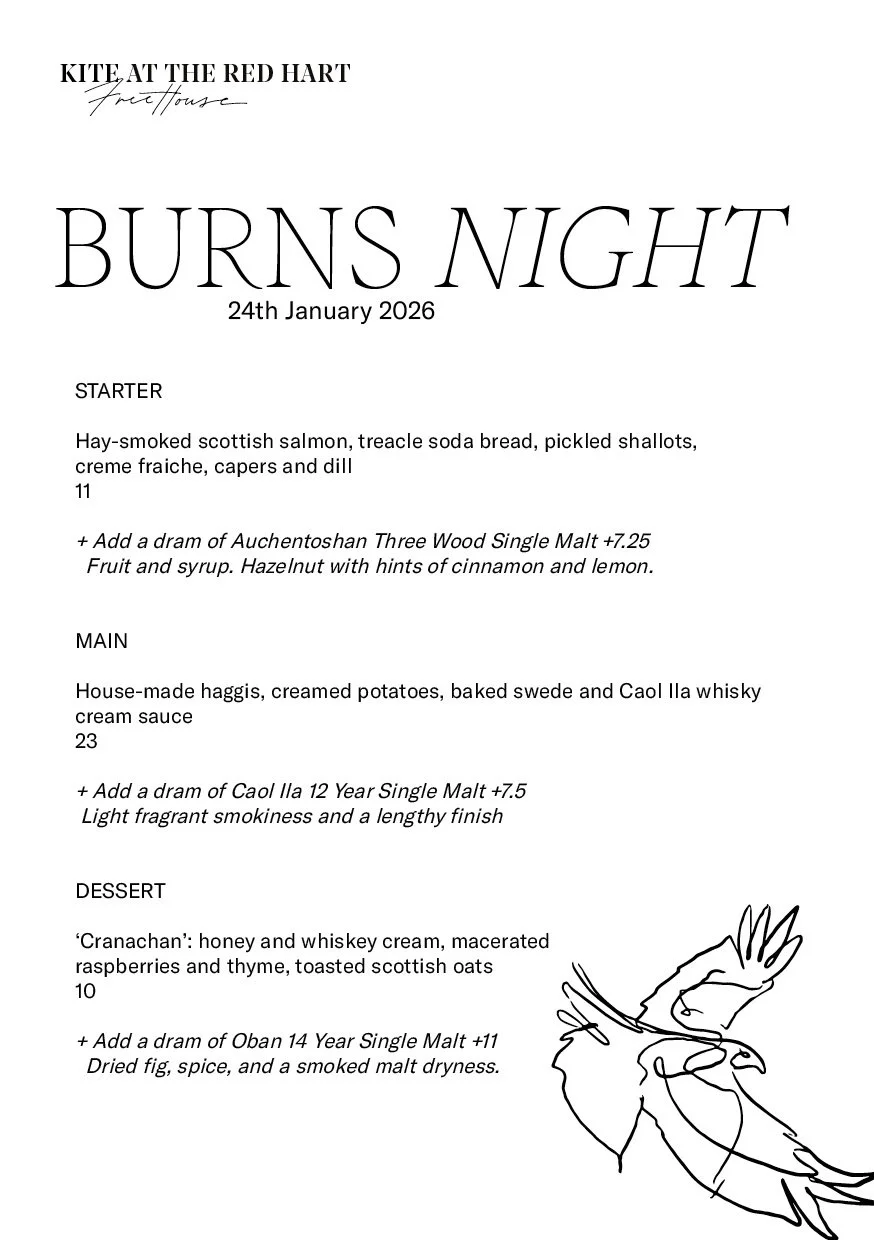 KITE AT THE RED HART
FreeHouse
BURNS NIGHT
24th January 2026
STARTER
Hay-smoked scottish salmon, treacle soda bread, pickled shallots,
creme fraiche, capers and dill
11
+ Add a dram of Auchentoshan Three Wood Single Malt +7.25
Fruit and syrup. Hazelnut with hints of cinnamon and lemon.
MAIN
House-made haggis, creamed potatoes, baked swede and Caol Ila whisky
cream sauce
23
+ Add a dram of Caol Ila 12 Year Single Malt +7.5
Light fragrant smokiness and a lengthy finish
DESSERT
‘Cranachan’: honey and whiskey cream, macerated
raspberries and thyme, toasted scottish oats
10
+ Add a dram of Oban 14 Year Single Malt +11
Dried fig, spice, and a smoked malt dryness.